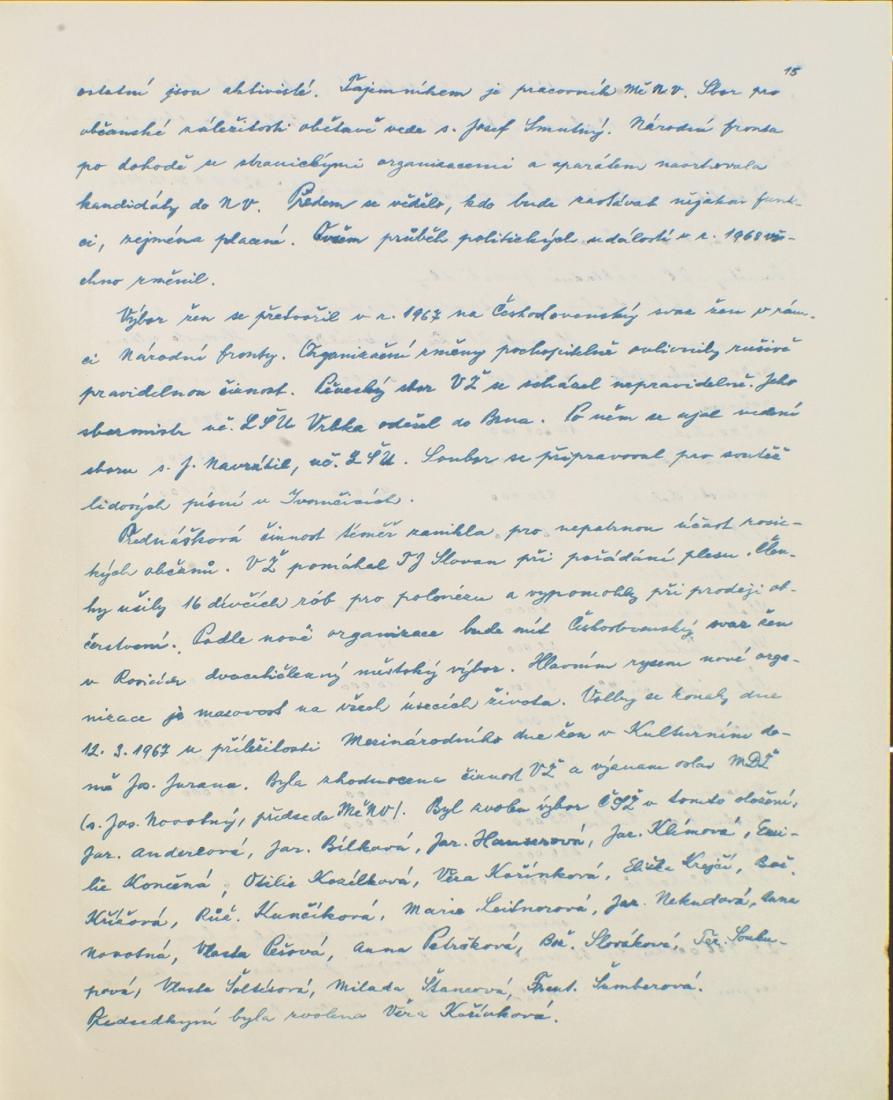 15
ostatní jsou aktivisté. Tajemníkem je pracovník MěNV. Sbor pro
občanské záležitosti obětavě vede s. Josef Smutný. Národní fronta
po dohodě se stranickými organizacemi a aparátem navrhovala
kandidáty do NV. Předem se vědělo, kdo bude zastávat nějakou funk-
ci, zejména placení. Ovšem průběh politických událostí v r. 1968 vše-
chno změnil.
Výbor žen se přetvořil v r. 1967 na Československý svaz žen v rám-
ci Národní fronty. Organizační změny pochopitelně ovlivnily rušivě
pravidelnou činnost. Pěvecký sbor VŽ se scházel nepravidelně. Jeho
sbormistr uč. LŠU Vrbka odešel do Brna. Po něm se ujal vedení
sboru s. J. Navrátil, uč. LŠU. Soubor se připravoval pro soutěž
lidových písní v Ivančicích.
Přednášková činnost téměř zanikla pro nepatrnou účast rosic-
kých občanů. VŽ pomáhal TJ Slovan při pořádání plesu. Člen-
ky ušily 16 dívčích rób pro polonézu a vypomohly při prodeji ob-
čerstvení. Podle nové organizace bude mít Československý svaz žen
v Rosicích dvacetičlenný městský výbor. Hlavním rysem nové orga-
nizace je masovost na všech úsecích života. Volby se konaly dne
12. 3. 1967 u příležitosti Mezinárodního dne žen v Kulturním do-
mě Jos. Jurana. Byla zhodnocena činnost VŽ a význam oslav MDŽ
(s. Jos. Novotný, předseda MěNV). Byl zvolen výbor ČSŽ v tomto složení:
Jar. Anderlová, Jar. Bílková, Jar. Hanserová, Jar. Klímová, Emi-
lie Končená, Otilie Kozílková, Věra Kořínková, Eliška Krejčí, Bož.
Křížová, Růž. Kunčíková, Marie Leitnerová, Jar. Nekudová, Anna
Novotná, Vlasta Pešová, Anna Petršková, Bož. Slováková, Ter. Souku-
pová, Vlasta Šoltésová, Milada Štancová, Frant. Šumberová.
Předsedkyní byla zvolena Věra Kořínková.